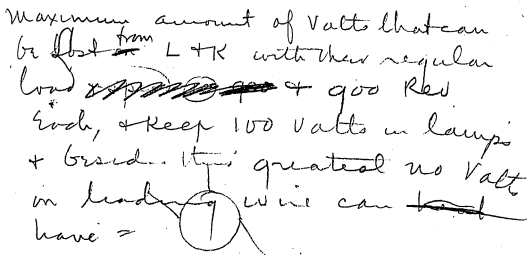 Maximum amount of Volts that can
be lost from L + K with their regular
load + 900 Rev
Each, + Keep 100 Volts in lamps
+ besid. this greatest no Volts
in leading wire can
have =